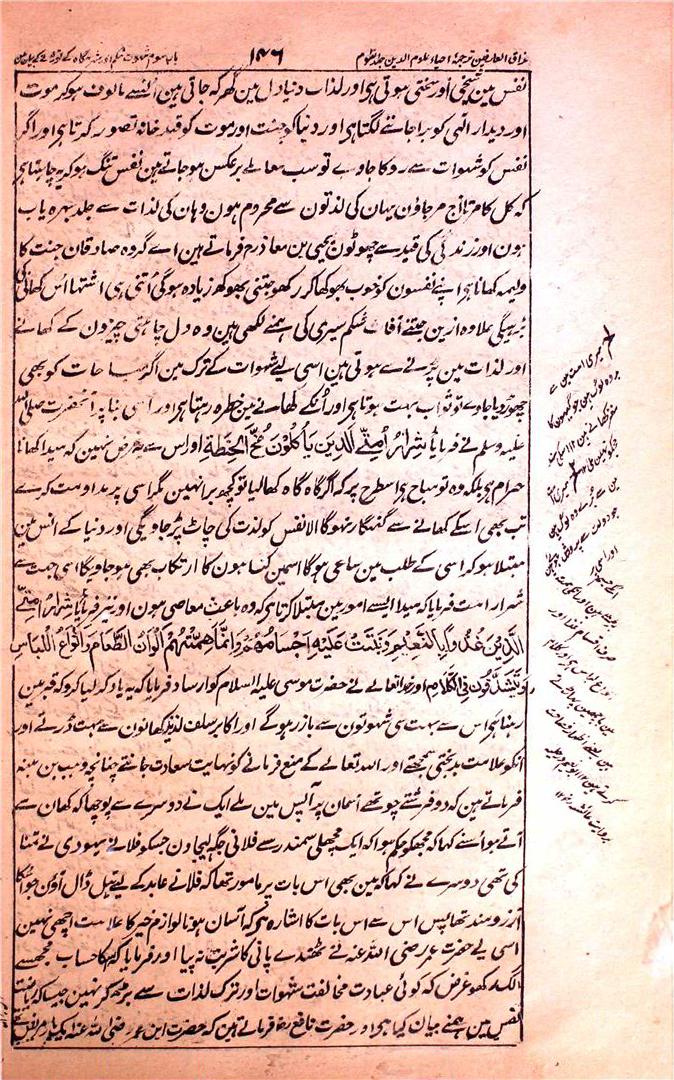 مذاق العارفین ترجمۂ احیاء علوم الدین جلد سوم
۱۴۶
باب سوم شہوت شکم اور شرمگاہ کے توڑنے کے بیان مین
نفس مین سختی ہوتی ہی اور لذات دنیا دل مین گھر کر جاتی ہین اُنسے مالوف ہو کر موت
اور دیدار الٰہی کو برا جاننے لگتا ہی اور دنیا کو جنت اور موت کو قید خانہ تصور کرتا ہی اور اگر
نفس کو شہوات سے روکا جاوے تو سب معاملے برعکس ہو جاتے ہین نفس تنگ ہو کر یہ چاہتا ہی
کہ کل کا مرتا آج مر جاؤن یہان کی لذتون سے محروم ہون وہان کی لذات سے جلد بہرہ یاب
ہون اور زندگی کی قید سے چھوٹون یحیی بن معاذ رح فرماتے ہین اے گروہ صادقان جنت کا
ولیمہ کھانا ہی اپنے نفسون کو خوب بھوکھا کر رکھو جتنی بھوکھ زیادہ ہوگی اُتنی ہی اشتہا اُس کھانے کی
بڑھیگی علاوہ ازین جتنے آفات شکم سیری کی ہمنے لکھی ہین وہ دل چاہتی چیزون کے کھانے
اور لذات مین پڑنے سے ہوتی ہین اسی لیے شہوات کے ترک مین اگر مباحات کو بھی
چھوڑ دیا جاوے تو ثواب بہت ہوتا ہی اور اُنکے کھانے مین خطرہ رہتا ہی اور اسی بنا پر آنحضرت صلی اللہ
علیہ وسلم نے فرمایا شِرَارُ اُمَّتِی الَّذِینَ یَاکُلُونَ مُخَّ الحِنطَۃِ اور اس سے یہ غرض نہین کہ میدا کھانا
حرام ہی بلکہ وہ تو مباح ہی اسطرح پر کہ اگر گاہ گاہ کھا لیا تو کچھ برا نہین مگر اسی پر مداومت کرے
تب بھی اسکے کھانے سے گنہگار نہوگا الا نفس کو لذت کی چاٹ پڑ جاویگی اور دنیا کے انس مین
مبتلا ہو کر اسی کے طلب مین ساعی ہوگا اسمین گناہون کا ارتکاب بھی ہو جاویگا اسی جہت سے
شرار امت فرمایا کہ میدا ایسے امور مین مبتلا کرتا ہی کہ وہ باعث معاصی ہون اور نیز فرمایا شِرَارُ اُمَّتِی
الَّذِینَ غُذُوا بِالنَّعِیمِ وَنَبَتَت عَلَیہِ اَجسَامُہُم وَاِنَّمَا ھِمَّتُہُم اَلوَانُ الطَّعَامِ وَاَنوَاعُ اللِّبَاسِ
وَیَتَشَدَّقُونَ فِی الکَلَامِ اور خدا تعالے نے حضرت موسی علیہ السلام کو ارشاد فرمایا کہ یہ یاد کر لیا کرو کہ قبر مین
رہنا ہی اس سے بہت سی شہوتون سے باز رہوگے اور اکابر سلف لذیذ کھانون سے بہت ڈرتے اور
اُنکو علامت بدبختی سمجھتے اور اللہ تعالے کے منع فرمانے کو نہایت سعادت جانتے چنانچہ وہب بن منبہ
فرماتے ہین کہ دو فرشتے چوتھے آسمان پر آپس مین ملے ایک نے دوسرے سے پوچھا کہ کہان سے
آتے ہو اُسنے کہا کہ مجھکو حکم ہوا کہ ایک مچھلی سمندر سے فلانی جگہ لیجاؤن جسکو فلانے یہودی نے تمنا
کی تھی دوسرے نے کہا کہ مین بھی اس بات پر مامور تھا کہ فلانے عابد کے لیے تیل ڈال آؤن جو اُسکا
آرزومند تھا پس اس سے اس بات کا اشارہ ہی کہ آسان ہونا لوازم خیر کا علامت اچھی نہین
اسی لیے حضرت عمر رضی اللہ عنہ نے ٹھنڈے پانی کا شربت نہ پیا اور فرمایا کہ اسکا حساب مجھسے
الگ رکھو غرض کہ کوئی عبادت مخالفت شہوات اور ترک لذات سے بڑھ کر نہین جیسا کہ ریاضت
نفس مین ہمنے بیان کیا ہی اور حضرت نافع رح فرماتے ہین کہ حضرت ابن عمر رضی اللہ عنہ ایکبار مریض
میری امت مین سے
برے وہ لوگ ہین جو گیہون کا
مغز کھاتے ہین ۱۲